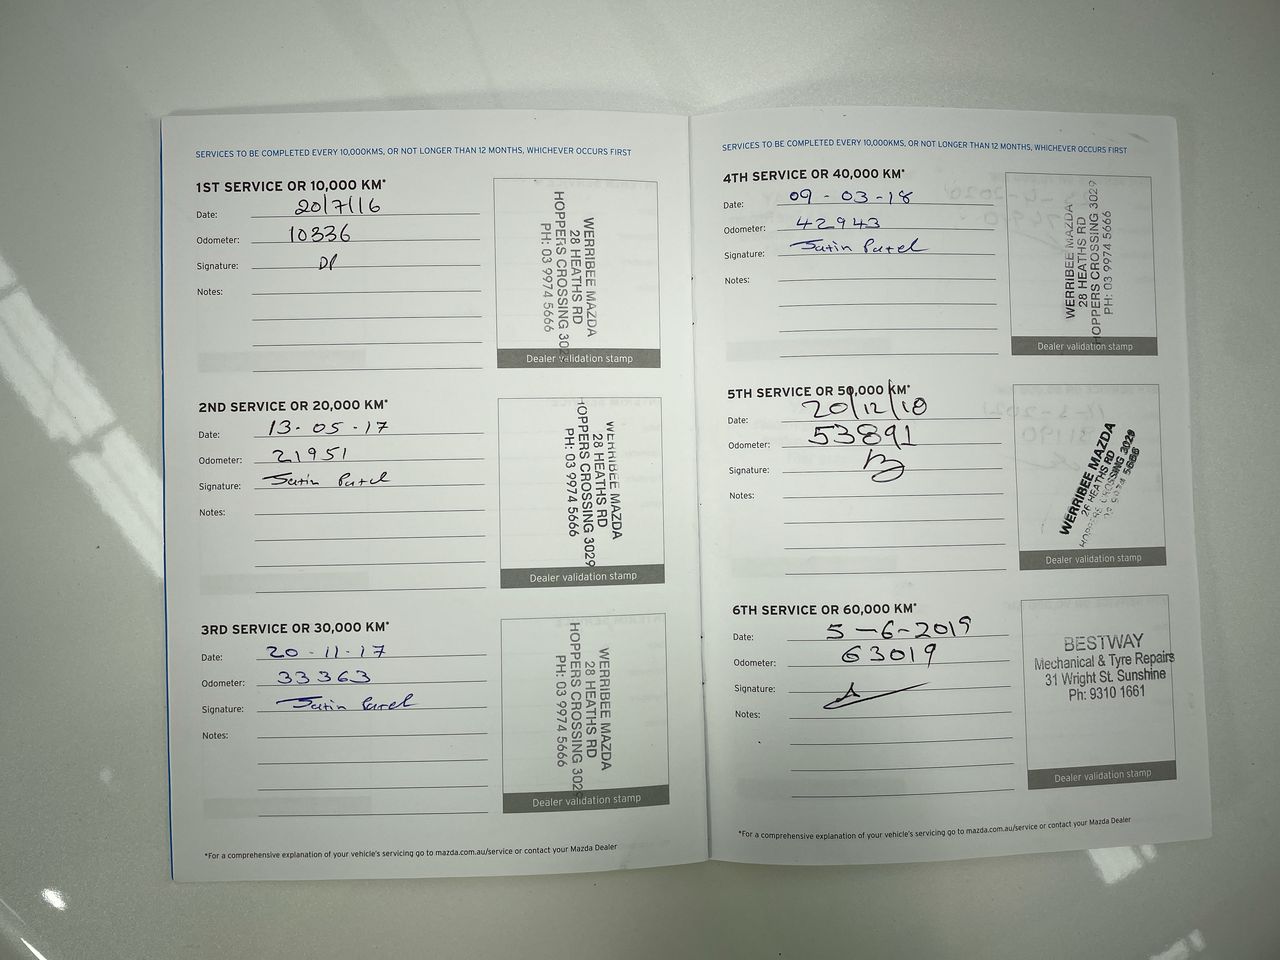 SERVICES TO BE COMPLETED EVERY 10,000KMS, OR NOT LONGER THAN 12 MONTHS, WHICHEVER OCCURS FIRST
1ST SERVICE OR 10,000 KM*
Date: 20/7/16
Odometer: 10336
Signature: DP
Notes:
WERRIBEE MAZDA
28 HEATHS RD
HOPPERS CROSSING 302
PH: 03 9974 5666
Dealer validation stamp
2ND SERVICE OR 20,000 KM*
Date: 13-05-17
Odometer: 21951
Signature: Jatin Patel
Notes:
WERRIBEE MAZDA
28 HEATHS RD
HOPPERS CROSSING 3029
PH: 03 9974 5666
Dealer validation stamp
3RD SERVICE OR 30,000 KM*
Date: 20-11-17
Odometer: 33363
Signature: Jatin Patel
Notes:
WERRIBEE MAZDA
28 HEATHS RD
HOPPERS CROSSING 302
PH: 03 9974 5666
Dealer validation stamp
*For a comprehensive explanation of your vehicle's servicing go to mazda.com.au/service or contact your Mazda Dealer
SERVICES TO BE COMPLETED EVERY 10,000KMS, OR NOT LONGER THAN 12 MONTHS, WHICHEVER OCCURS FIRST
4TH SERVICE OR 40,000 KM*
Date: 09-03-18
Odometer: 42943
Signature: Jatin Patel
Notes:
WERRIBEE MAZDA
28 HEATHS RD
HOPPERS CROSSING 3029
PH: 03 9974 5666
Dealer validation stamp
5TH SERVICE OR 50,000 KM*
Date: 20/12/18
Odometer: 53891
Signature:
Notes:
WERRIBEE MAZDA
HEATHS RD
HOPPERS CROSSING 3029
5666
Dealer validation stamp
6TH SERVICE OR 60,000 KM*
Date: 5-6-2019
Odometer: 63019
Signature:
Notes:
BESTWAY
Mechanical & Tyre Repairs
31 Wright St. Sunshine
Ph: 9310 1661
Dealer validation stamp
*For a comprehensive explanation of your vehicle's servicing go to mazda.com.au/service or contact your Mazda Dealer